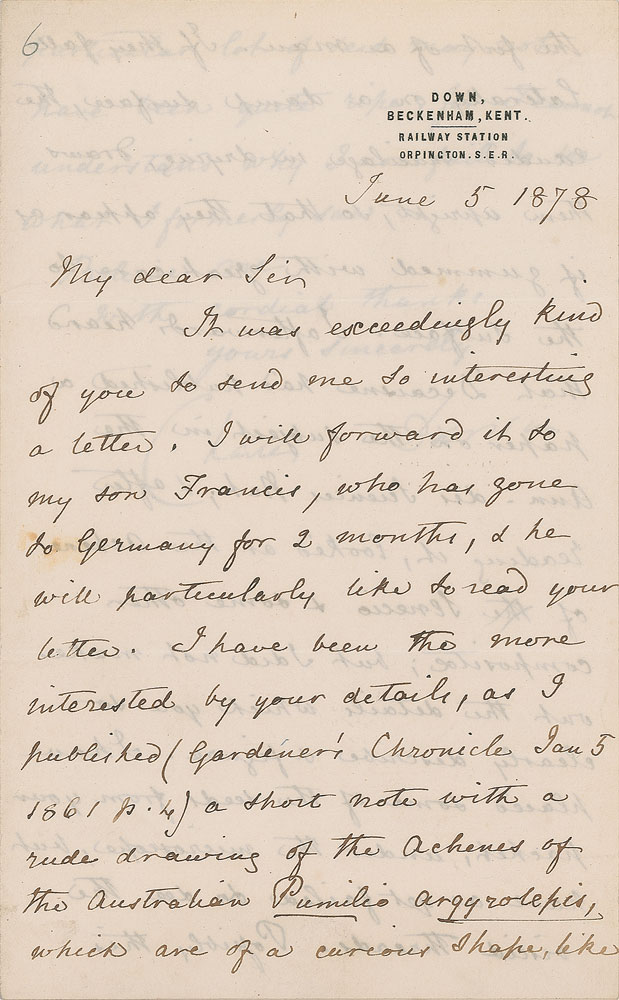 6
DOWN,
BECKENHAM, KENT.
RAILWAY STATION
ORPINGTON. S.E.R.
June 5 1878
My dear Sir
It was exceedingly kind
of you to send me so interesting
a letter. I will forward it to
my son Francis, who has gone
to Germany for 2 months, & he
will particularly like to read your
letter. I have been the more
interested by your details, as I
published (Gardener's Chronicle Jan 5
1861 p. 4) a short note with a
rude drawing of the Achenes of
the Australian Pumilio argyrolepis,
which are of a curious shape, like